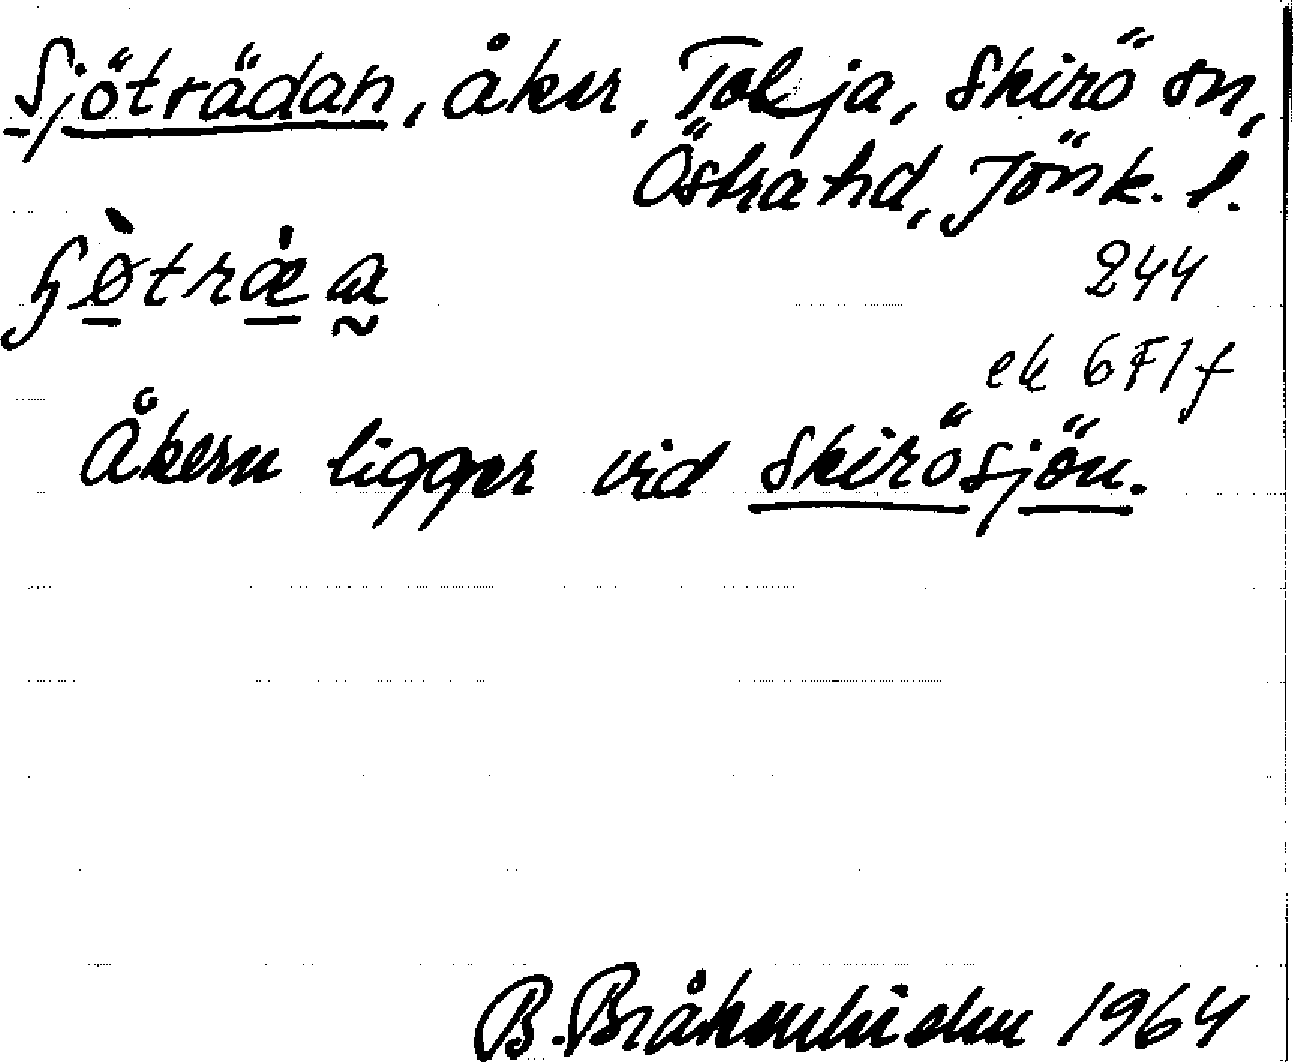 Sjöträdan, åker, Tolja, Skirö sn,
Östra hd, Jönk. l.
244
ek 6F1f
Åkern ligger vid Skirösjön.
B. 1964